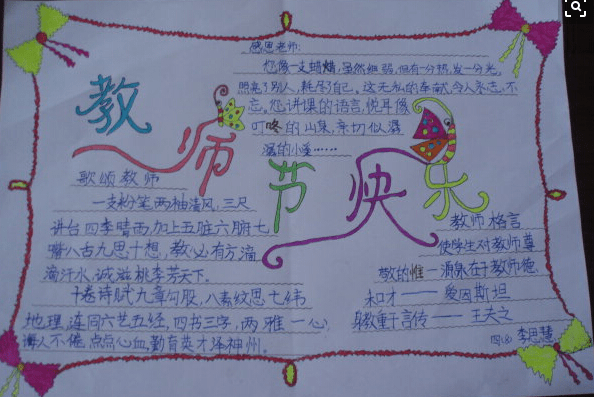 教师节快乐
感恩老师:
您像一支蜡烛,虽然细弱,但有一分热,发一分光,
照亮了别人,耗尽了自己。这无私的奉献,令人永志不
忘。您讲课的语言,悦耳像
叮咚的山泉,亲切似潺
潺的小溪……
歌颂教师
一支粉笔,两袖清风,三尺
讲台四季晴雨,加上五脏六腑七
嘴八舌九思十想,教必有方,滴
滴汗水,诚滋桃李芳天下。
十卷诗赋,九章勾股,八索文思七纬
地理,连同六艺五经,四书三字,两雅一心,
诲人不倦,点点心血,勤育英才泽神州。
教师格言
使学生对教师尊
敬的惟一源泉在于教师德
和才——爱因斯坦
身教重于言传——王夫之
四.(8) 李思慧